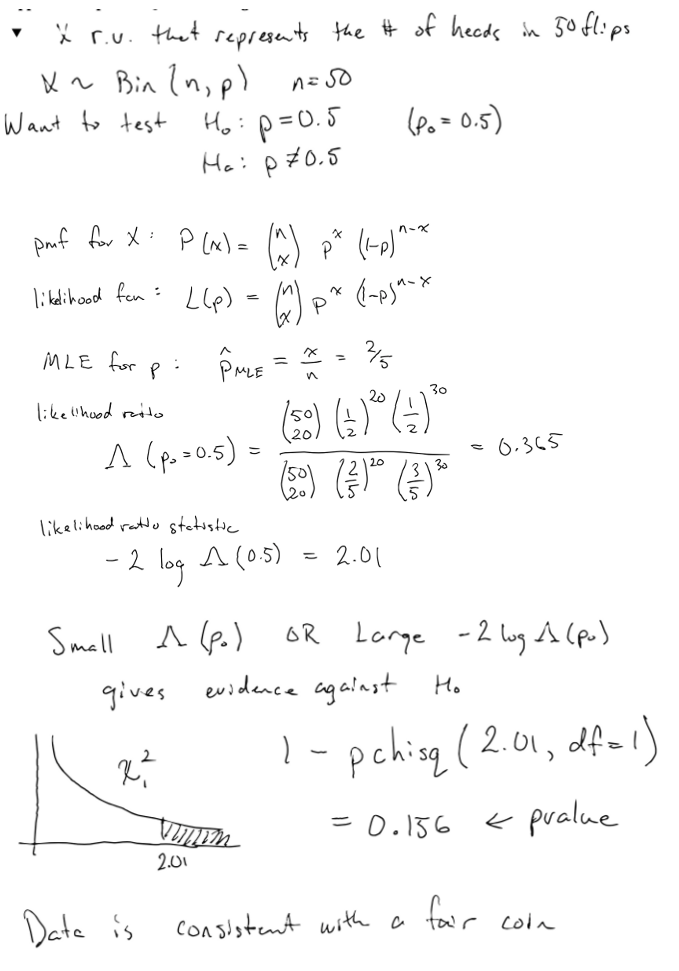 X r.v. that represents the # of heads in 50 flips
X ~ Bin (n, p) n=50
Want to test H₀: p=0.5 (p₀ = 0.5)
Hₐ: p≠0.5
pmf for X: P(x) = (n x) pˣ (1-p)ⁿ⁻ˣ
likelihood fcn: L(p) = (n x) pˣ (1-p)ⁿ⁻ˣ
MLE for p: p̂_MLE = x/n = 2/5
likelihood ratio
Λ (p₀=0.5) = (50 20) (1/2)²⁰ (1/2)³⁰ / (50 20) (2/5)²⁰ (3/5)³⁰ = 0.365
likelihood ratio statistic
-2 log Λ(0.5) = 2.01
Small Λ(p₀) OR Large -2 log Λ(p₀)
gives evidence against H₀
χ₁²
1 - pchisq (2.01, df=1)
= 0.156 ← pvalue
2.01
Data is consistent with a fair coin